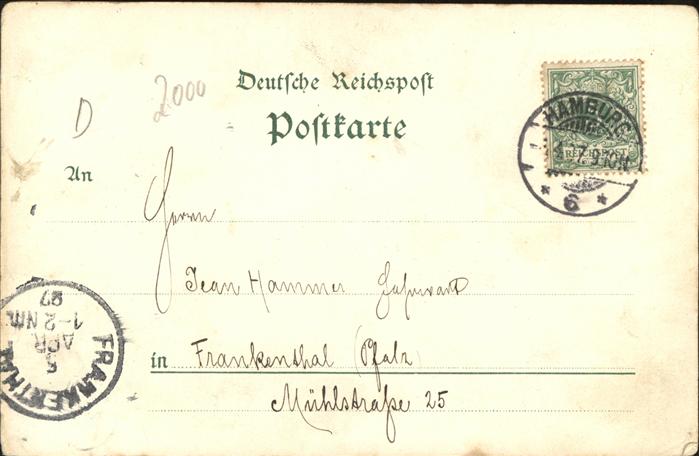 D
2000
Deutsche Reichspost
Postkarte
HAMBURG
REICHSPOST
6
An
Herrn
Jean Hammer
in Frankenthal (Pfalz)
Mühlstraße 25
FRANKENTHAL
5
APR.
1-2 NM.
97